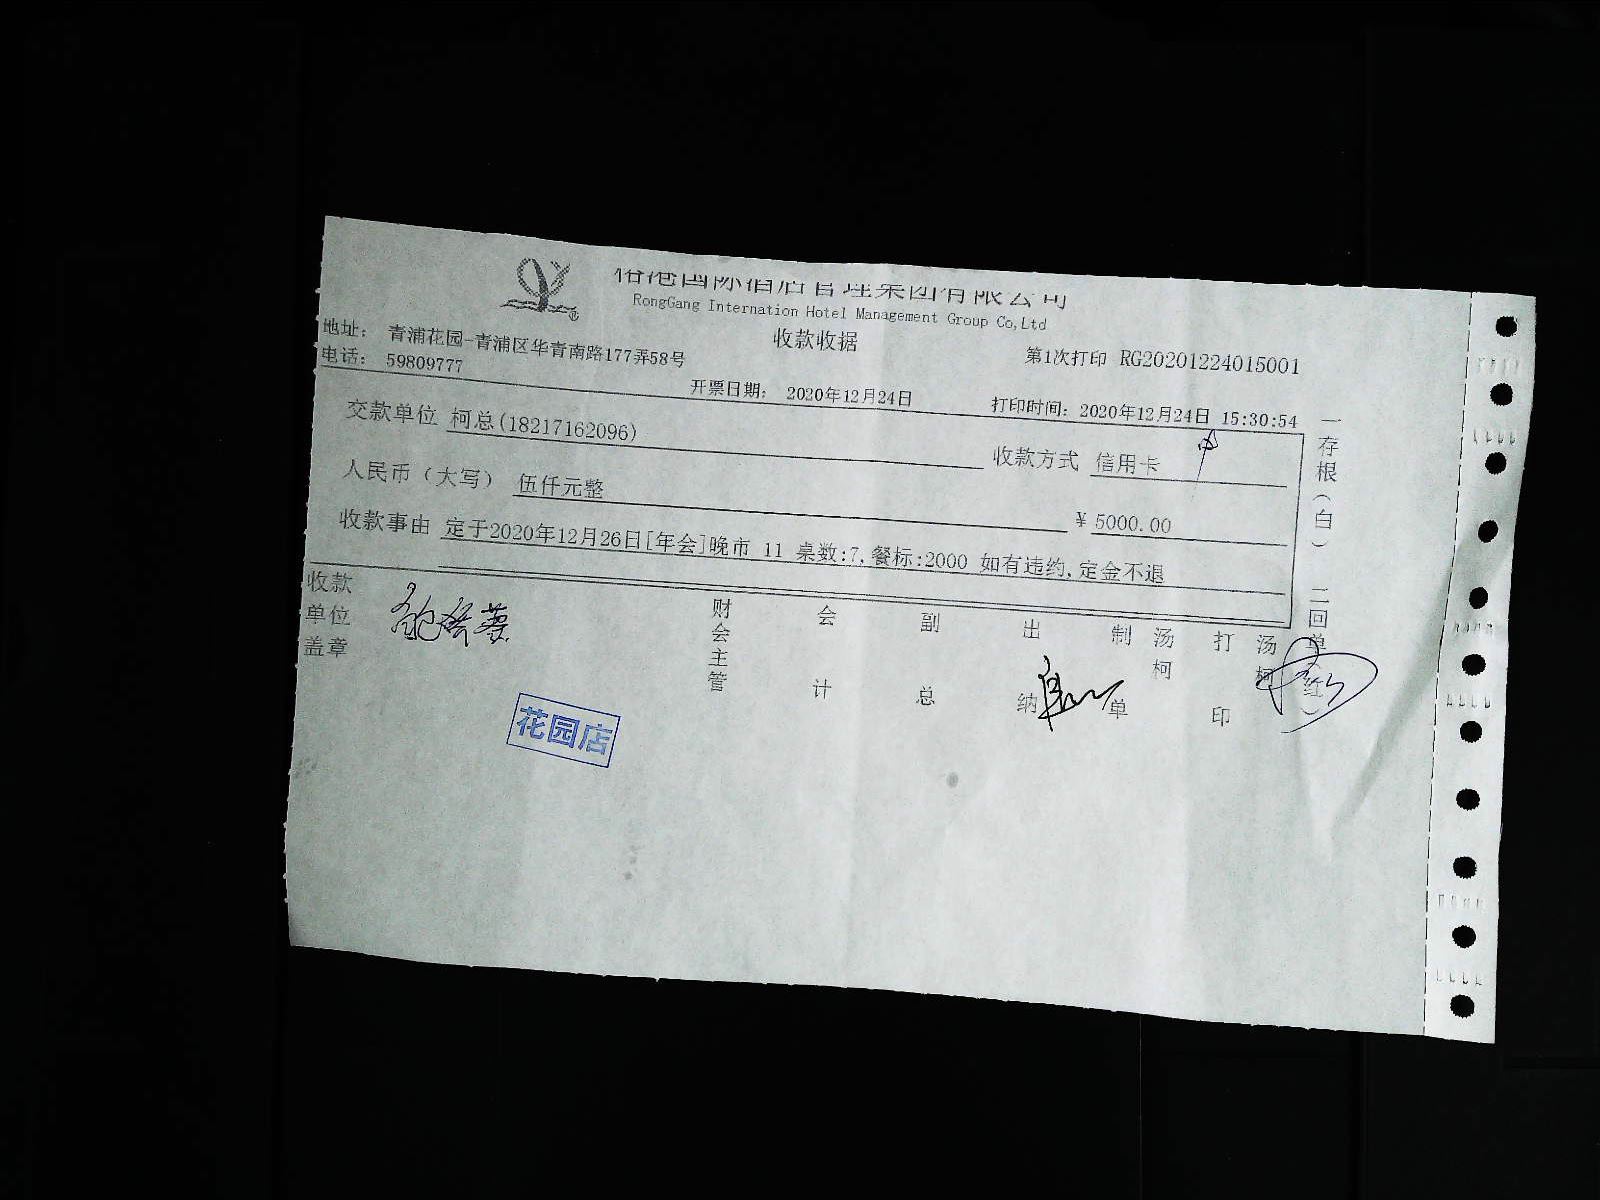 港国际酒店管理集团有限公司
RongGang Internation Hotel Management Group Co,Ltd
收款收据
地址： 青浦花园-青浦区华青南路177弄58号
第1次打印 RG20201224015001
电话： 59809777
开票日期： 2020年12月24日
打印时间：2020年12月24日 15:30:54
交款单位 柯总(18217162096)
收款方式 信用卡
人民币（大写） 伍仟元整
¥ 5000.00
收款事由 定于2020年12月26日[年会]晚市 11 桌数:7,餐标:2000 如有违约,定金不退
一存根（白） 二回单（红）
收款单位盖章
财会主管
会计
副总
出纳
制单
汤柯
打印
汤柯
花园店